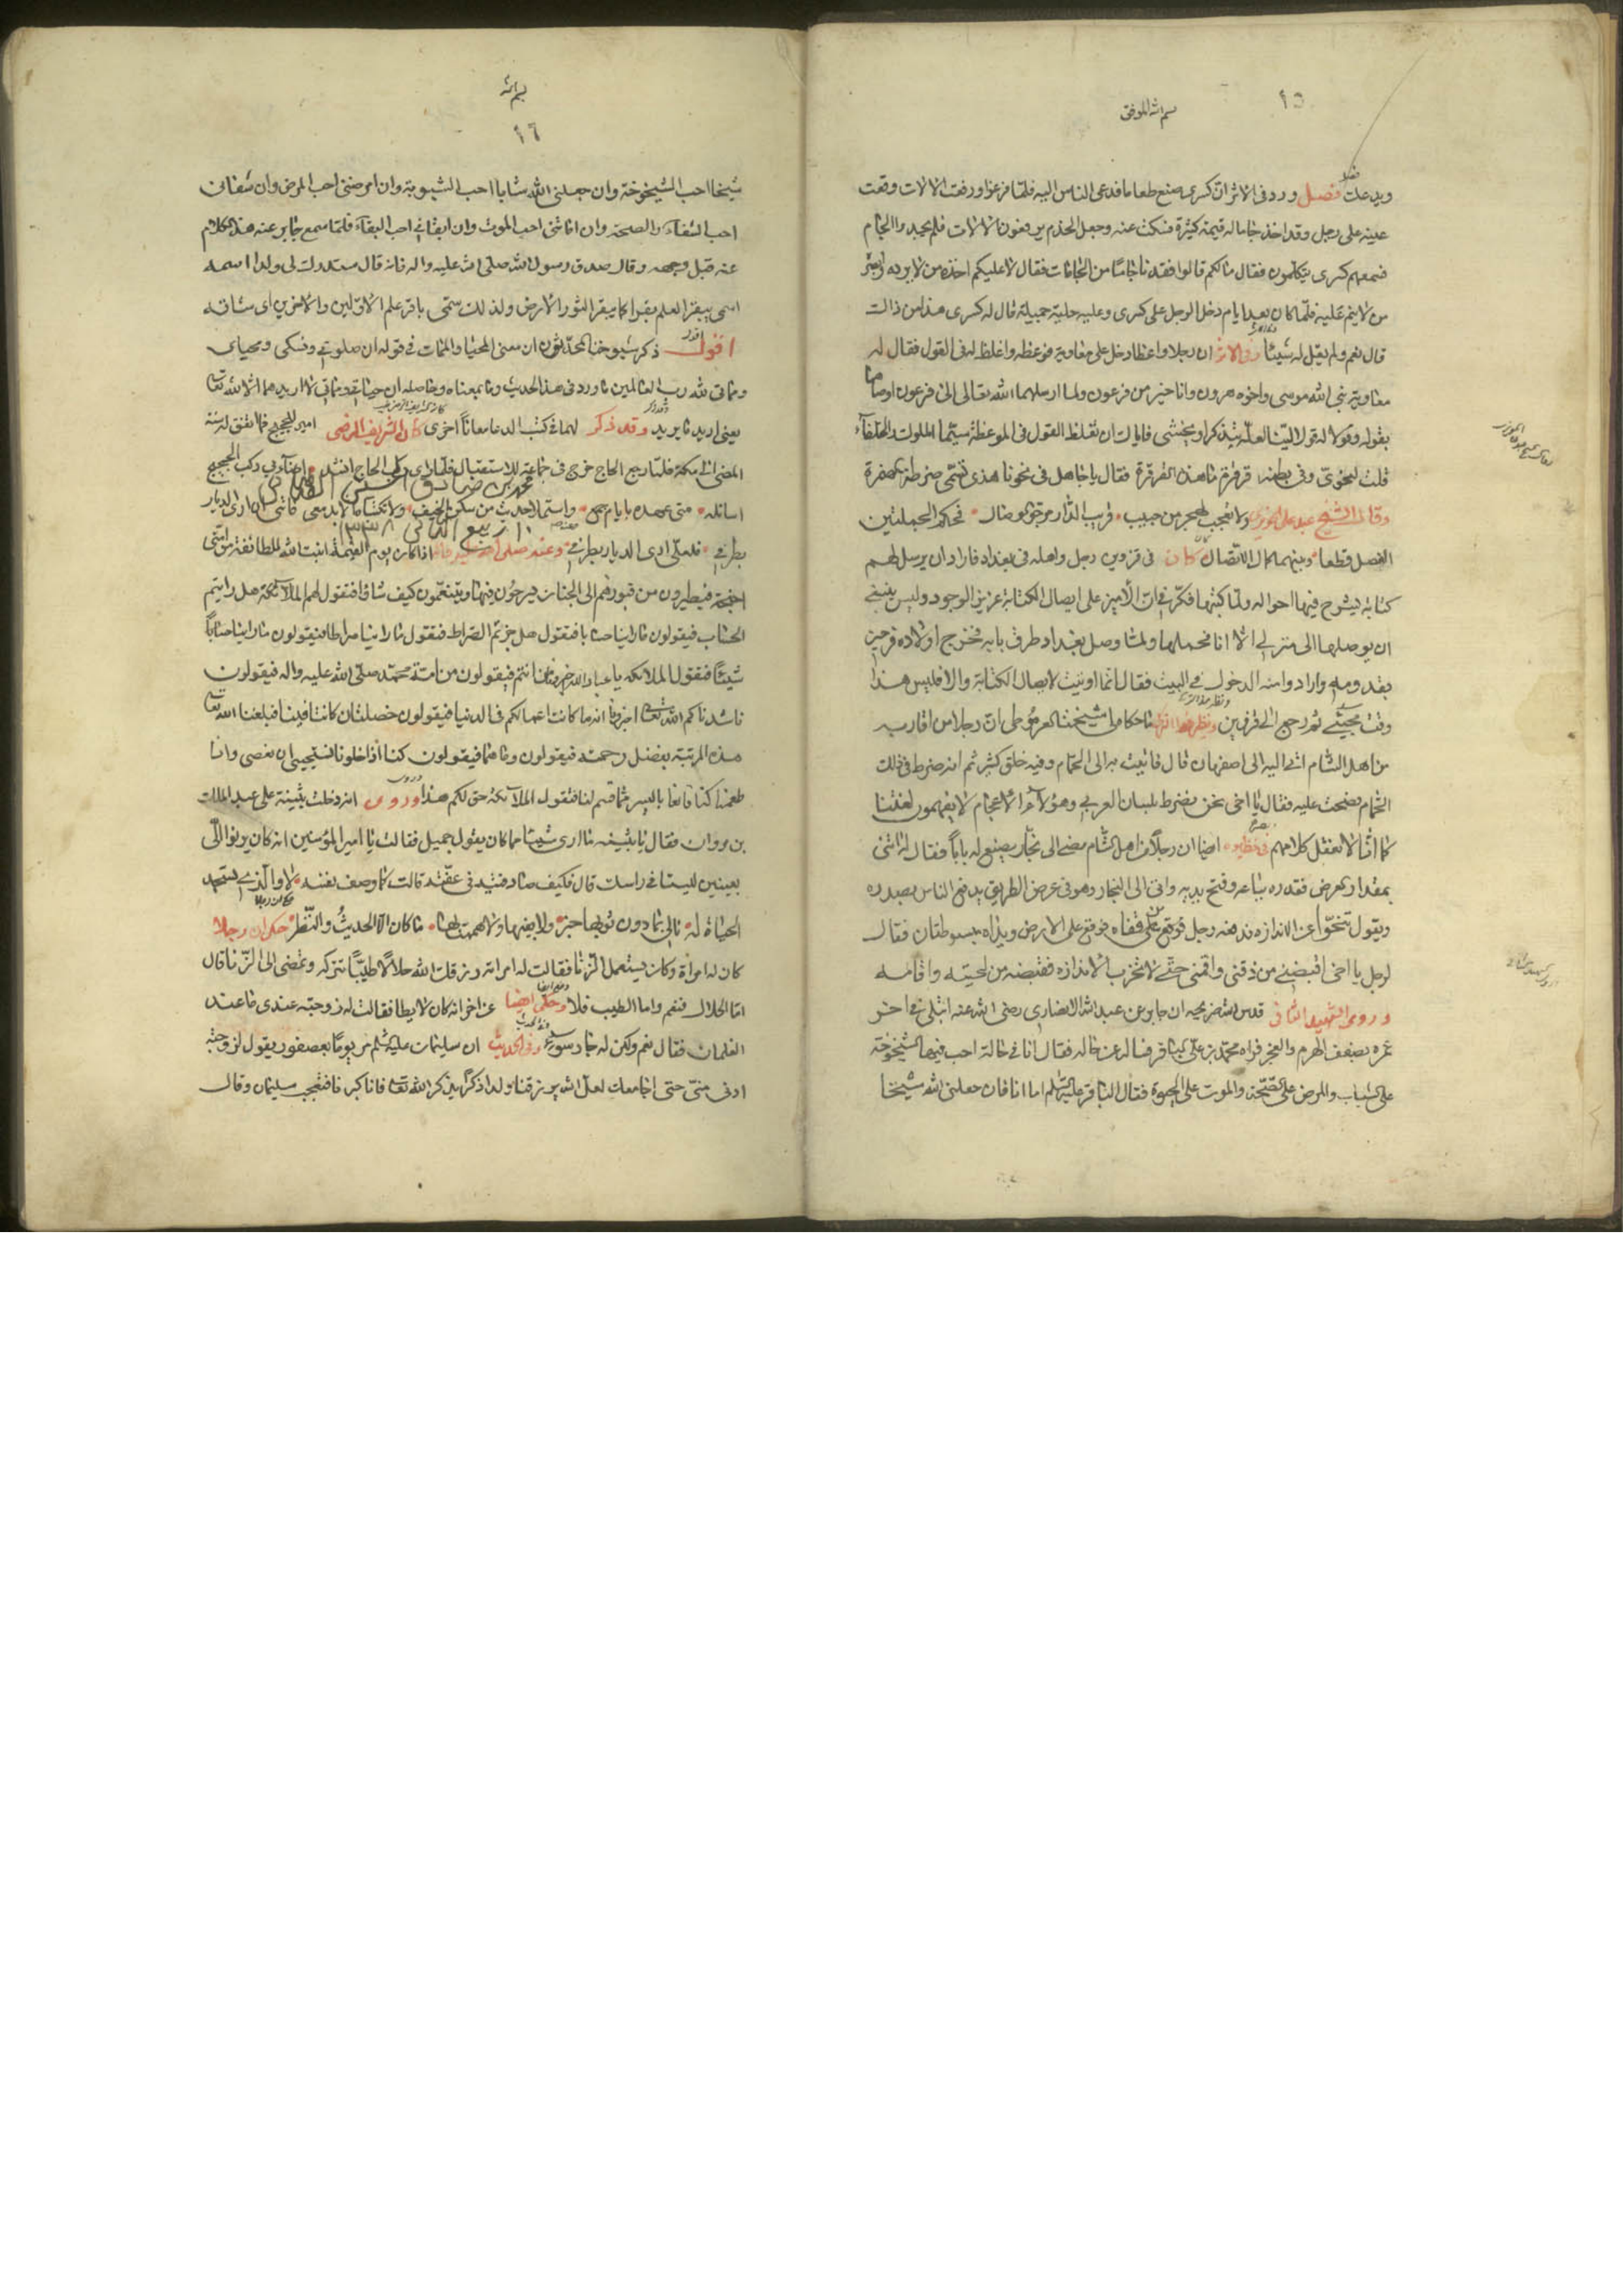 بسم الله الموفق
١٥
ويدعك فصل ورد في الاثر ان كسرى صنع طعاما فدعى الناس اليه فلما فرغوا ورفعت الالات وقعت
عينه على رجل وقد اخذ جاما له قيمة كثيرة فسكت عنه وجعل الخدم يرفعون الالات فلم يجدوا الجام
فسمعهم كسرى يتكلمون فقال ما لكم قالوا فقدنا جاما من الجامات فقال لا عليكم اخذه من لا يرده وابصره
من لا ينم عليه فلما كان بعد ايام دخل الرجل على كسرى وعليه حلية جميلة قال له كسرى هذا من ذاك
قال نعم ولم يقل له شيئا وفي الاثر ان رجلا واعظا دخل على معاوية فوعظه واغلظ له في القول فقال له
معاوية نبي الله موسى واخوه هرون وانا خير من فرعون ولما ارسلهما الله تعالى الى فرعون اوصاهما
بقوله وقولا له قولا لينا لعله يتذكر او يخشى فاياك ان تغلظ القول في الموعظة سيما الملوك والخلفاء
قلت لنحوي وفي بطنه قرقرة ما هذه القرقرة فقال يا جاهل في نحونا هذي تسمى ضرطة مضمرة
وقال الشيخ عبد علي الحويزي ولا تعجب لهجر من حبيب قريب الدار مرجو الوصال فحكم الجملتين
الفصل قطعا وبينهما كمال الاتصال كان في قزوين رجل واهله في بغداد فاراد ان يرسل لهم
كتابة يشرح فيها احواله ولما كتبها فكر في ان الامين على ايصال الكتابة عزيز الوجود وليس ينبغي
ان يوصلها الى منزلي الا انا فحملها ولما وصل بغداد طرق بابه فخرج اولاده فرحين
بقدومه وارادوا منه الدخول في البيت فقال انما اتيت لايصال الكتابة والا فليس هذا
وقت مجيئي ثم رجع الى قزوين ونظير هذا النقل ما حكاه لي شيخنا العرموطي ان رجلا من اقاربه
من اهل الشام اتى اليه الى اصفهان قال فاتيت به الى الحمام وفيه خلق كثير ثم انه ضرط في ذلك
الحمام فضحك عليه فقال يا اخي نحن نضرط بلسان العربي وهؤلاء الاعجام لا يفهمون لغتنا
كما انا لا نعقل كلامهم في نظيره ايضا ان رجلا من اهل الشام مضى الى نجار يصنع له بابا فقال له ائتني
بمقدار العرض فقدره بباعه وفتح يديه واتى الى النجار وهو في عرض الطريق يدفع الناس بصدره
ويقول تنحوا عن الاندازه فدفعه رجل فوقع على قفاه فوقع على الارض ويداه مبسوطتان فقال
لرجل يا اخي اقبضني من ذقني واقمني حتى لا تخرب الاندازه فقبضه من لحيته واقامه
وروى الشهيد الثاني قدس الله ضريحه ان جابر بن عبد الله الانصاري رضي الله عنه ابتلى في اخر
عمره بضعف الهرم والعجز فزاه محمد بن علي الباقر فساله عن حاله فقال انا في حالة احب فيها الشيخوخة
على الشباب والمرض على الصحة والموت على الحيوة فقال الباقر عليه السلام اما انا فان جعلني الله شيخا
بسم الله
١٦
شيخا احب الشيخوخة وان جعلني الله شابا احب الشيبوبة وان امرضني احب المرض وان شفاني
احب الشفاء والصحة وان اماتني احب الموت وان ابقاني احب البقاء فلما سمع جابر عنه هذا الكلام
عنه قبل وجهه وقال صدق رسول الله صلى الله عليه واله فانه قال ستدرك لي ولدا اسمه
اسمي يبقر العلم بقرا كما يبقر الثور الارض ولذلك سمي باقر علم الاولين والاخرين اي شاقه
اقول ذكر شيوخنا المحدثون ان معنى المحيا والممات في قوله ان صلوتي ونسكي ومحياي
ومماتي لله رب العالمين ما ورد في هذا الحديث وما بمعناه وحاصله ان حياتي ومماتي لا اريدهما الا لله تعالى
يعني اريد ما يريد وقد ذكر لهما في كتب الدعا معانا اخرى كان الشريف الرضي امير الحجيج فما اتفق له سنة
المضي الى مكة فلما رجع الحاج خرج في جماعة للاستقبال فلما راى ركب الحاج انشد
اسائله متى عهده بايام جمع واستملا حديث من سكن الخيف ولا تكتباه الا بدمعي فاتني ان ارى الديار
بطرفي فلعلي ارى الديار بطرفي وعنه صلى الله عليه واله اذا كان يوم القيمة انبت الله لطائفة من امتي
اجنحة فيطيرون من قبورهم الى الجنان يسرحون فيها ويتنعمون كيف شاؤا فتقول لهم الملائكة هل رايتم
الحساب فيقولون ما راينا حسابا فتقول هل جزتم الصراط فيقولون ما راينا صراطا فيقولون ما راينا حسابا
شيئا فتقول الملائكة يا عباد الله من انتم فيقولون من امة محمد صلى الله عليه واله فيقولون
ناشدناكم الله تعالى اخبرونا ما كانت اعمالكم في الدنيا فيقولون خصلتان كانتا فينا فبلغنا الله تعالى
هذه المرتبة بفضل رحمته فيقولون وما هما فيقولون كنا اذا خلونا نستحيي ان نعصي وانا
طعمنا كنا قانعا باليسير مما قسم لنا فتقول الملائكة حق لكم هذا وروي انه دخلت بثينة على عبد الملك
بن مروان فقال يا بثينة ما ارى شيئا مما كان يقول جميل فقالت يا امير المؤمنين انه كان يرنو الي
بعينين ليستا في راسك قال فكيف صادفتيه في عفته قالت كما وصف نفسه لا والذي تسجد
الجباه له مالي بما دون ثوبها خبر ولا بفيها ولا هممت بها ما كان الا الحديث والنظر حكي ان رجلا
كان له امراة وكان يستعمل الزنا فقالت له امراته ورزقك الله حلالا طيبا تتركه وتمضي الى الزنا قال
اما الحلال فنعم واما الطيب فلا وحكي ايضا عن اخر انه كان لا يطا فقالت له زوجته عندي ما عند
الغلمان فقال نعم ولكن له جار سوء وفي الحديث ان سليمان عليه السلام مر يوما بعصفور يقول لزوجته
ادني مني حتى اجامعك لعل الله يرزقنا ولدا ذكرا يذكر الله تعالى فانا كبرنا فتعجب سليمان وقال